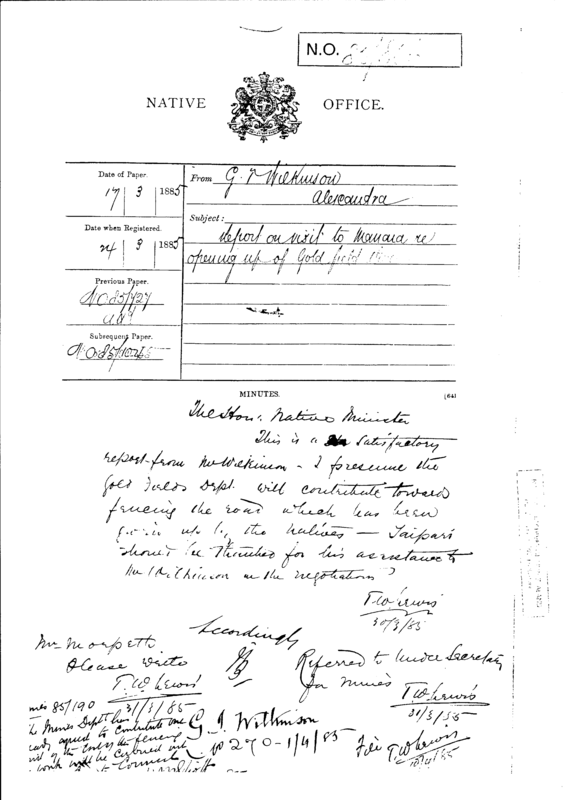 N.O.
NATIVE OFFICE.
Date of Paper.
17 | 3 | 1885
Date when Registered.
24 | 3 | 1885
Previous Paper.
Subsequent Paper.
From G. T. Wilkinson
Alexandra
Subject:
Report on visit to Manaia re
opening up of Gold field
MINUTES.
The Hon: Native Minister
This is a satisfactory
report from Mr Wilkinson - I presume the
Gold Fields Dept. will contribute toward
fencing the road which has been
given up by the Natives - Taipari
should be thanked for his assistance to
Mr Wilkinson in the negotiations
T.W. Lewis
30/3/85
Accordingly
Mr Morpeth
Please write
T.W. Lewis
31/3/85
Referred to Under Secretary
for Mines
T.W. Lewis
31/3/85
85/190
The Mines Dept has
agreed to contribute one
of the cost of the fencing
work will be carried out
G. T. Wilkinson
270 - 1/4/85
File T.W. Lewis